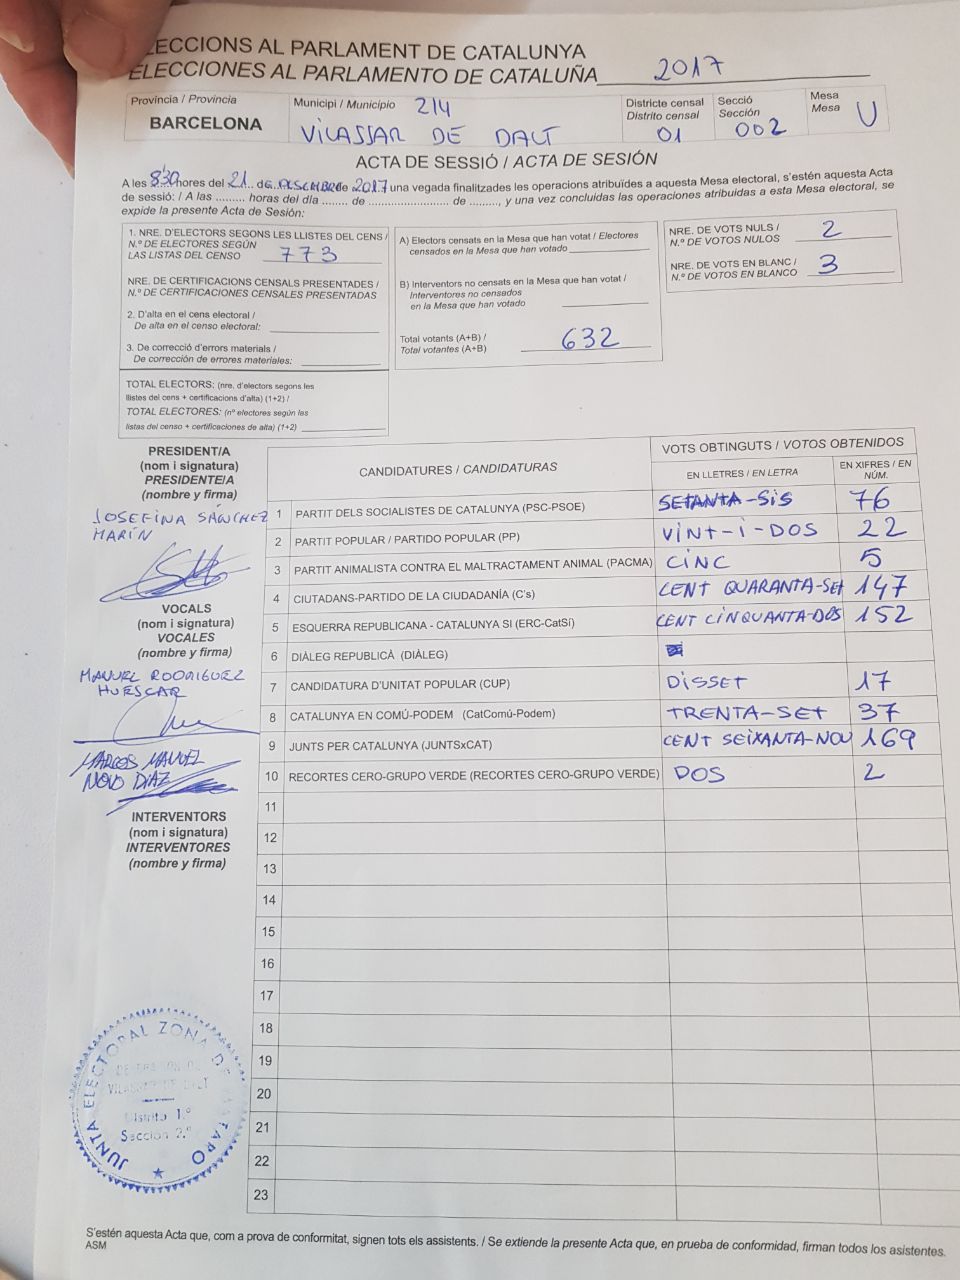 ELECCIONS AL PARLAMENT DE CATALUNYA
ELECCIONES AL PARLAMENTO DE CATALUÑA 2017
Província / Provincia
BARCELONA
Municipi / Municipio 214
VILASSAR DE DALT
Districte censal
Distrito censal
01
Secció
Sección
002
Mesa
Mesa
U
ACTA DE SESSIÓ / ACTA DE SESIÓN
A les 830 hores del 21 de DESEMBRE de 2017 una vegada finalitzades les operacions atribuïdes a aquesta Mesa electoral, s'estén aquesta Acta
de sessió: / A las ......... horas del día ........ de .................... de ........., y una vez concluidas las operaciones atribuidas a esta Mesa electoral, se
expide la presente Acta de Sesión:
1. NRE. D'ELECTORS SEGONS LES LLISTES DEL CENS /
N.º DE ELECTORES SEGÚN
LAS LISTAS DEL CENSO 773
NRE. DE CERTIFICACIONS CENSALS PRESENTADES /
N.º DE CERTIFICACIONES CENSALES PRESENTADAS
2. D'alta en el cens electoral /
De alta en el censo electoral:
3. De correcció d'errors materials /
De corrección de errores materiales:
TOTAL ELECTORS: (nre. d'electors segons les
llistes del cens + certificacions d'alta) (1+2) /
TOTAL ELECTORES: (nº electores según las
listas del censo + certificaciones de alta) (1+2)
A) Electors censats en la Mesa que han votat / Electores
censados en la Mesa que han votado
B) Interventors no censats en la Mesa que han votat /
Interventores no censados
en la Mesa que han votado
Total votants (A+B) /
Total votantes (A+B) 632
NRE. DE VOTS NULS /
N.º DE VOTOS NULOS 2
NRE. DE VOTS EN BLANC /
N.º DE VOTOS EN BLANCO 3
PRESIDENT/A
(nom i signatura)
PRESIDENTE/A
(nombre y firma)
JOSEFINA SÁNCHEZ
MARÍN
VOCALS
(nom i signatura)
VOCALES
(nombre y firma)
MANUEL RODRIGUEZ
HUESCAR
MARCOS MANUEL
NOVO DIAZ
INTERVENTORS
(nom i signatura)
INTERVENTORES
(nombre y firma)
CANDIDATURES / CANDIDATURAS
VOTS OBTINGUTS / VOTOS OBTENIDOS
EN LLETRES / EN LETRA
EN XIFRES / EN
NÚM.
1 PARTIT DELS SOCIALISTES DE CATALUNYA (PSC-PSOE) SETANTA-SIS 76
2 PARTIT POPULAR / PARTIDO POPULAR (PP) VINT-I-DOS 22
3 PARTIT ANIMALISTA CONTRA EL MALTRACTAMENT ANIMAL (PACMA) CINC 5
4 CIUTADANS-PARTIDO DE LA CIUDADANÍA (C's) CENT QUARANTA-SET 147
5 ESQUERRA REPUBLICANA - CATALUNYA SI (ERC-CatSí) CENT CINQUANTA-DOS 152
6 DIÀLEG REPUBLICÀ (DIÀLEG)
7 CANDIDATURA D'UNITAT POPULAR (CUP) DISSET 17
8 CATALUNYA EN COMÚ-PODEM (CatComú-Podem) TRENTA-SET 37
9 JUNTS PER CATALUNYA (JUNTSxCAT) CENT SEIXANTA-NOU 169
10 RECORTES CERO-GRUPO VERDE (RECORTES CERO-GRUPO VERDE) DOS 2
11
12
13
14
15
16
17
18
19
20
21
22
23
JUNTA ELECTORAL ZONA DE MATARO
VILASSAR DE DALT
Distrito 1.º
Sección 2.ª
S'estén aquesta Acta que, com a prova de conformitat, signen tots els assistents. / Se extiende la presente Acta que, en prueba de conformidad, firman todos los asistentes.
ASM